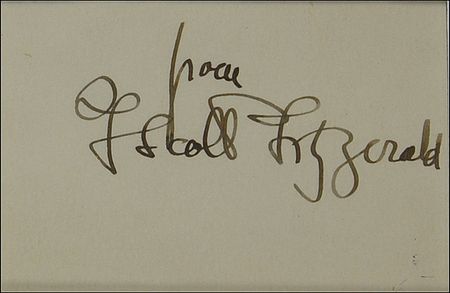 from
F Scott Fitzgerald